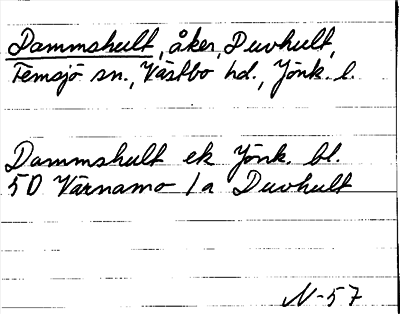 Dammshult, åker, Duvhult,
Femsjö sn., Västbo hd., Jönk. l.
Dammshult ek Jönk. bl.
50 Värnamo 1a Duvhult
N-57